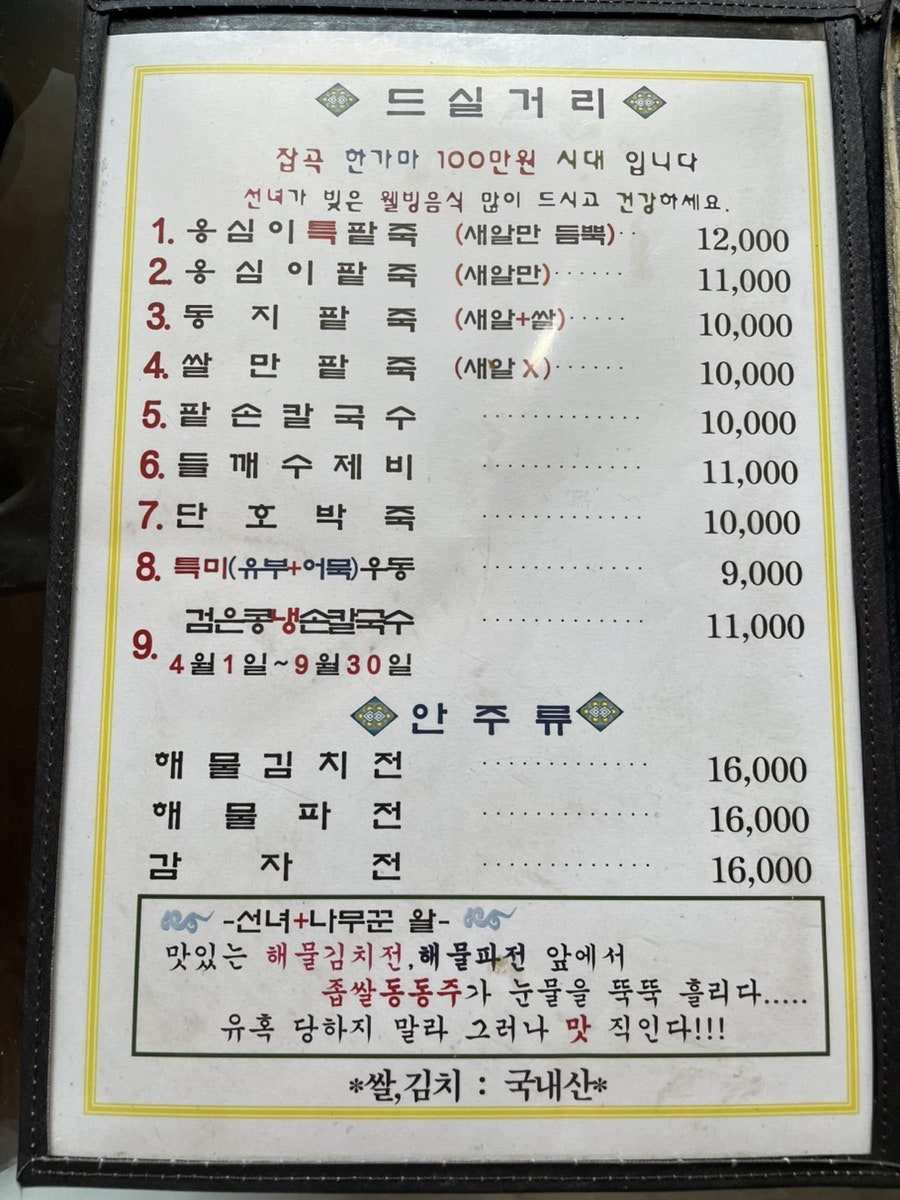 드실거리
잡곡 한가마 100만원 시대 입니다
선녀가 빚은 웰빙음식 많이 드시고 건강하세요.
1. 옹심이특팥죽 (새알만 듬뿍)·· 12,000
2. 옹심이팥죽 (새알만)······ 11,000
3. 동지팥죽 (새알+쌀)····· 10,000
4. 쌀만팥죽 (새알X)······ 10,000
5. 팥손칼국수 ············· 10,000
6. 들깨수제비 ············· 11,000
7. 단호박죽 ············· 10,000
8. 특미(유부+어묵)우동 ············· 9,000
9. 검은콩냉손칼국수 ············· 11,000
4월1일~9월30일
안주류
해물김치전 ············· 16,000
해물파전 ············· 16,000
감자전 ············· 16,000
-선녀+나무꾼 왈-
맛있는 해물김치전,해물파전 앞에서
좁쌀동동주가 눈물을 뚝뚝 흘리다.....
유혹 당하지 말라 그러나 맛 직인다!!!
*쌀,김치 : 국내산*